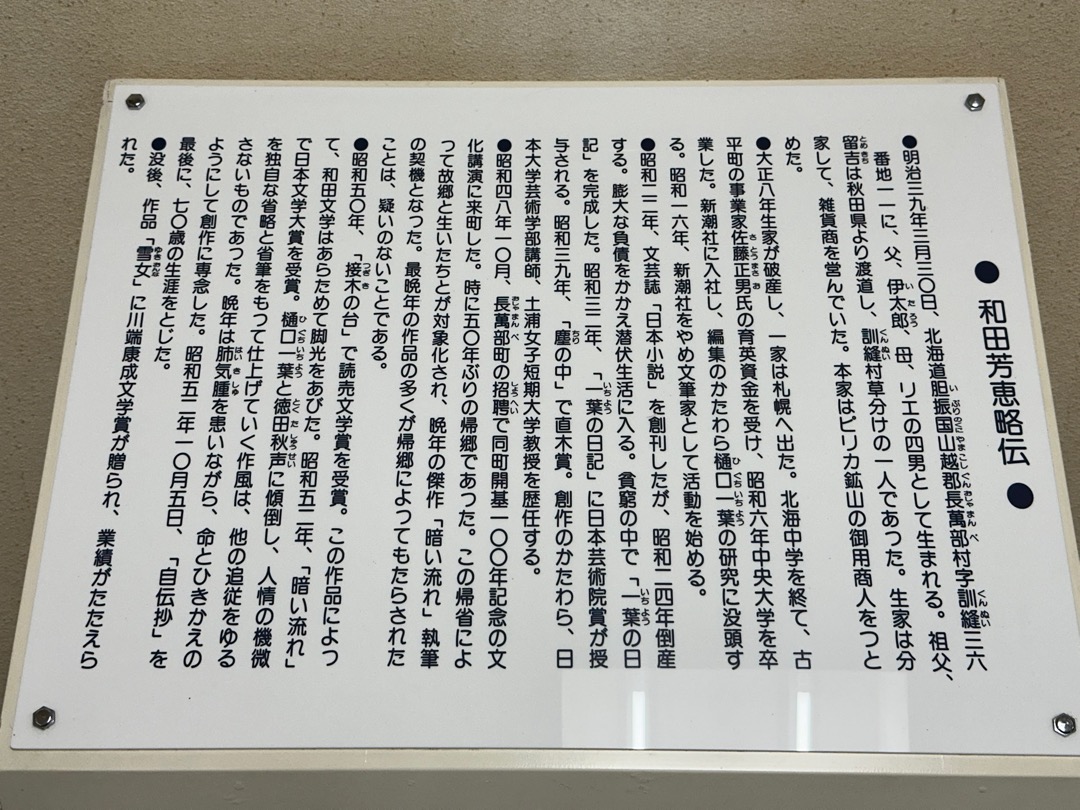 ● 和田芳恵略伝 ●
●明治三九年三月三〇日、北海道胆振国山越郡長萬部村字訓縫三六
番地一一に、父、伊太郎、母、リエの四男として生まれる。祖父、
留吉は秋田県より渡道し、訓縫村草分けの一人であった。生家は分
家して、雑貨商を営んでいた。本家はピリカ鉱山の御用商人をつと
めた。
●大正八年生家が破産し、一家は札幌へ出た。北海中学を終て、古
平町の事業家佐藤正男氏の育英資金を受け、昭和六年中央大学を卒
業した。新潮社に入社し、編集のかたわら樋口一葉の研究に没頭す
る。昭和一六年、新潮社をやめ文筆家として活動を始める。
●昭和二二年、文芸誌「日本小説」を創刊したが、昭和二四年倒産
する。膨大な負債をかかえ潜伏生活に入る。貧窮の中で「一葉の日
記」を完成した。昭和三二年、「一葉の日記」に日本芸術院賞が授
与される。昭和三九年、「塵の中」で直木賞。創作のかたわら、日
本大学芸術学部講師、土浦女子短期大学教授を歴任する。
●昭和四八年一〇月、長萬部町の招聘で同町開基一〇〇年記念の文
化講演に来町した。時に五〇年ぶりの帰郷であった。この帰省によ
って故郷と生いたちとが対象化され、晩年の傑作「暗い流れ」執筆
の契機となった。最晩年の作品の多くが帰郷によってもたらされた
ことは、疑いのないことである。
●昭和五〇年、「接木の台」で読売文学賞を受賞。この作品によっ
て、和田文学はあらためて脚光をあびた。昭和五二年、「暗い流れ」
で日本文学大賞を受賞。樋口一葉と徳田秋声に傾倒し、人情の機微
を独自な省略と省筆をもって仕上げていく作風は、他の追従をゆる
さないものであった。晩年は肺気腫を患いながら、命とひきかえの
ようにして創作に専念した。昭和五二年一〇月五日、「自伝抄」を
最後に、七〇歳の生涯をとじた。
●没後、作品「雪女」に川端康成文学賞が贈られ、業績がたたえら
れた。